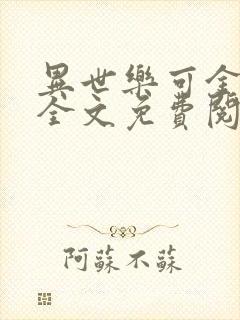 異世樂可全
全文免費閱
阿蘇不蘇